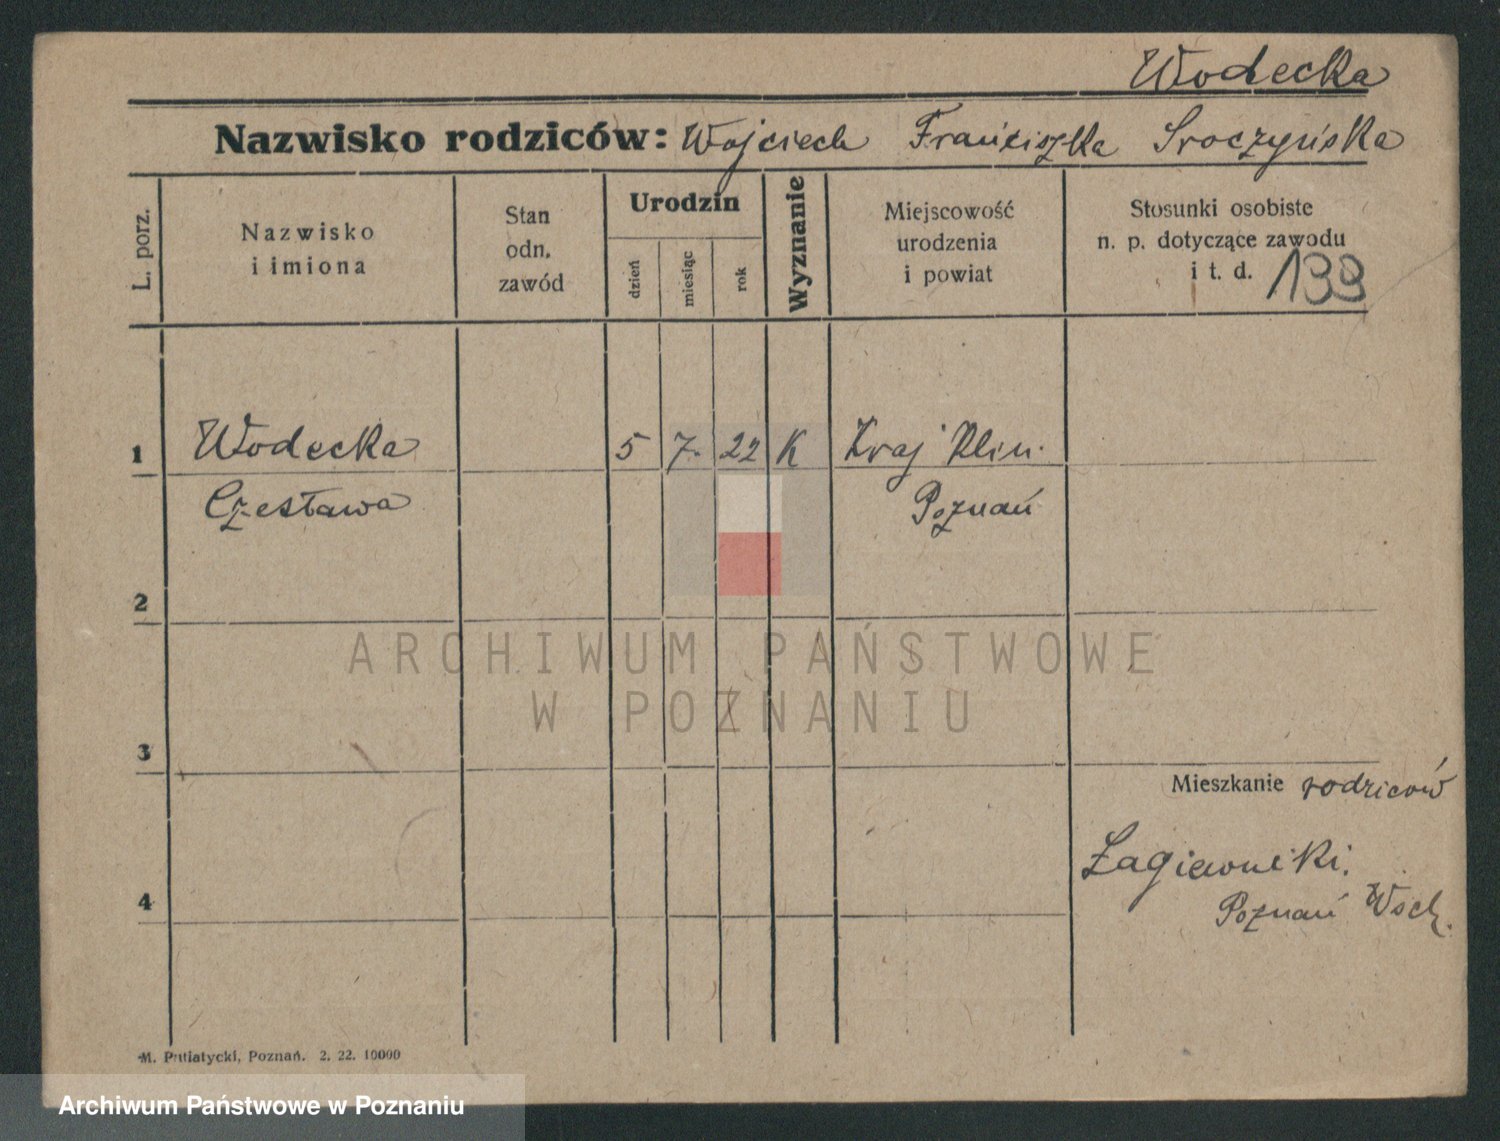 Wodecka
Nazwisko rodziców: Wojciech Franciszka Sroczyńska
L. porz.
Nazwisko
i imiona
Stan
odn.
zawód
Urodzin
dzień
miesiąc
rok
Wyznanie
Miejscowość
urodzenia
i powiat
Stosunki osobiste
n. p. dotyczące zawodu
i t. d. 139
1 Wodecka 5 7. 22 K Kraj. Klin.
Czesława Poznań
2
ARCHIWUM PAŃSTWOWE
W POZNANIU
3
Mieszkanie rodziców
Łagiewniki.
4
Poznań Wsch.
M. Putiatycki, Poznań. 2. 22. 10000
Archiwum Państwowe w Poznaniu